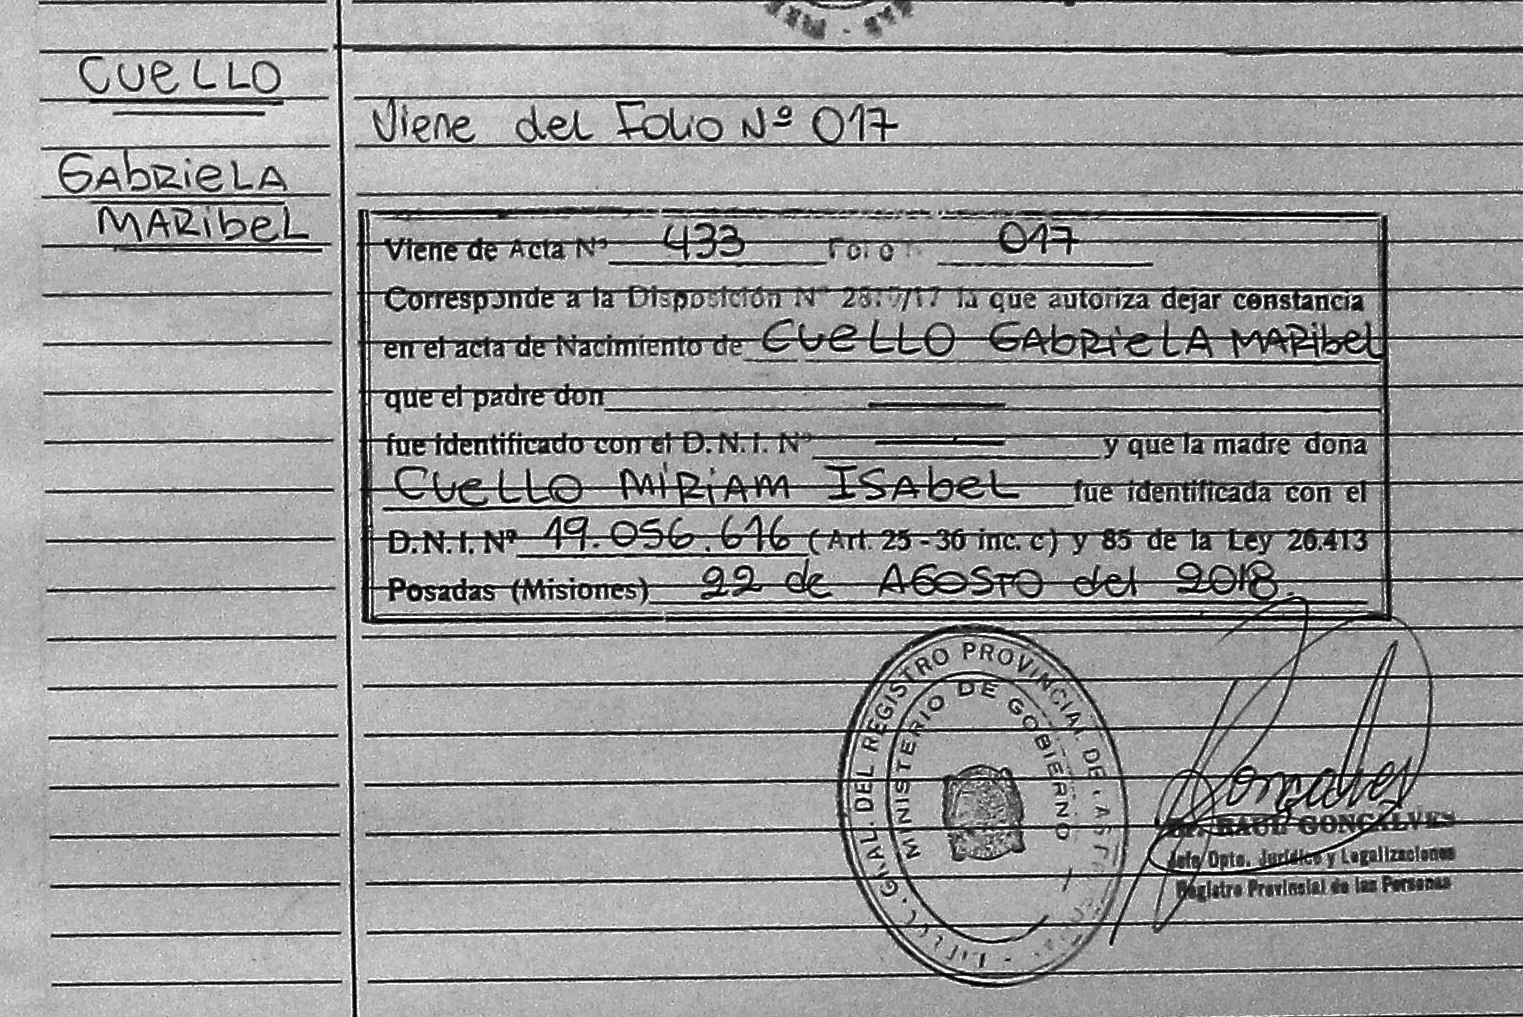 CUELLO
GABRIELA
MARIBEL
Viene del Folio Nº 017
Viene de Acta Nº 433 Folio 017
Corresponde a la Disposición Nº /17 la que autoriza dejar constancia
en el acta de Nacimiento de CUELLO GABRIELA MARIBEL
que el padre don
fue identificado con el D.N.I. Nº y que la madre dona
CUELLO MIRIAM ISABEL fue identificada con el
D.N.I. Nº 19.056.616 (Art. 25 - 36 inc. c) y 85 de la Ley 26.413
Posadas (Misiones) 22 de AGOSTO del 2018.
GRAL. DEL REGISTRO PROVINCIAL DE LAS
MINISTERIO DE GOBIERNO
Gonçalves
Dr. RAUL GONÇALVES
Jefe Dpto. Jurídico y Legalizaciones
Registro Provincial de las Personas